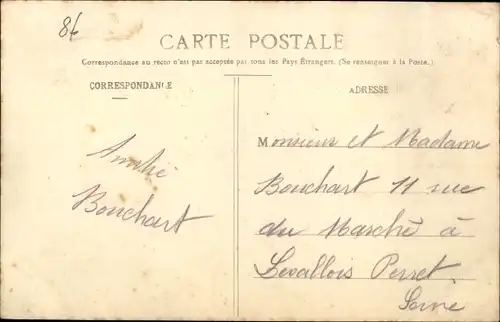 86
CARTE POSTALE
Correspondance au recto n'est pas acceptée par tous les Pays Étrangers. (Se renseigner à la Poste.)
CORRESPONDANCE
ADRESSE
André
Bouchart
Monsieur et Madame
Bouchart 11 rue
du Marché à
Levallois Perret
Seine